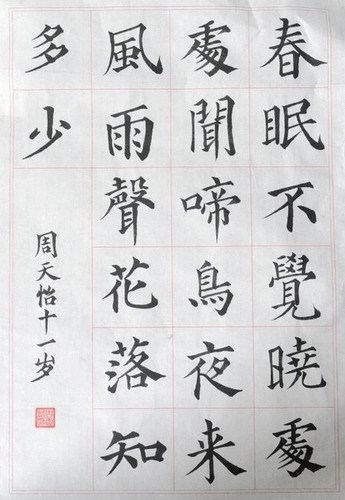 春眠不覺曉處
處聞啼鳥夜来
風雨聲花落知
多少
周天怡十一岁